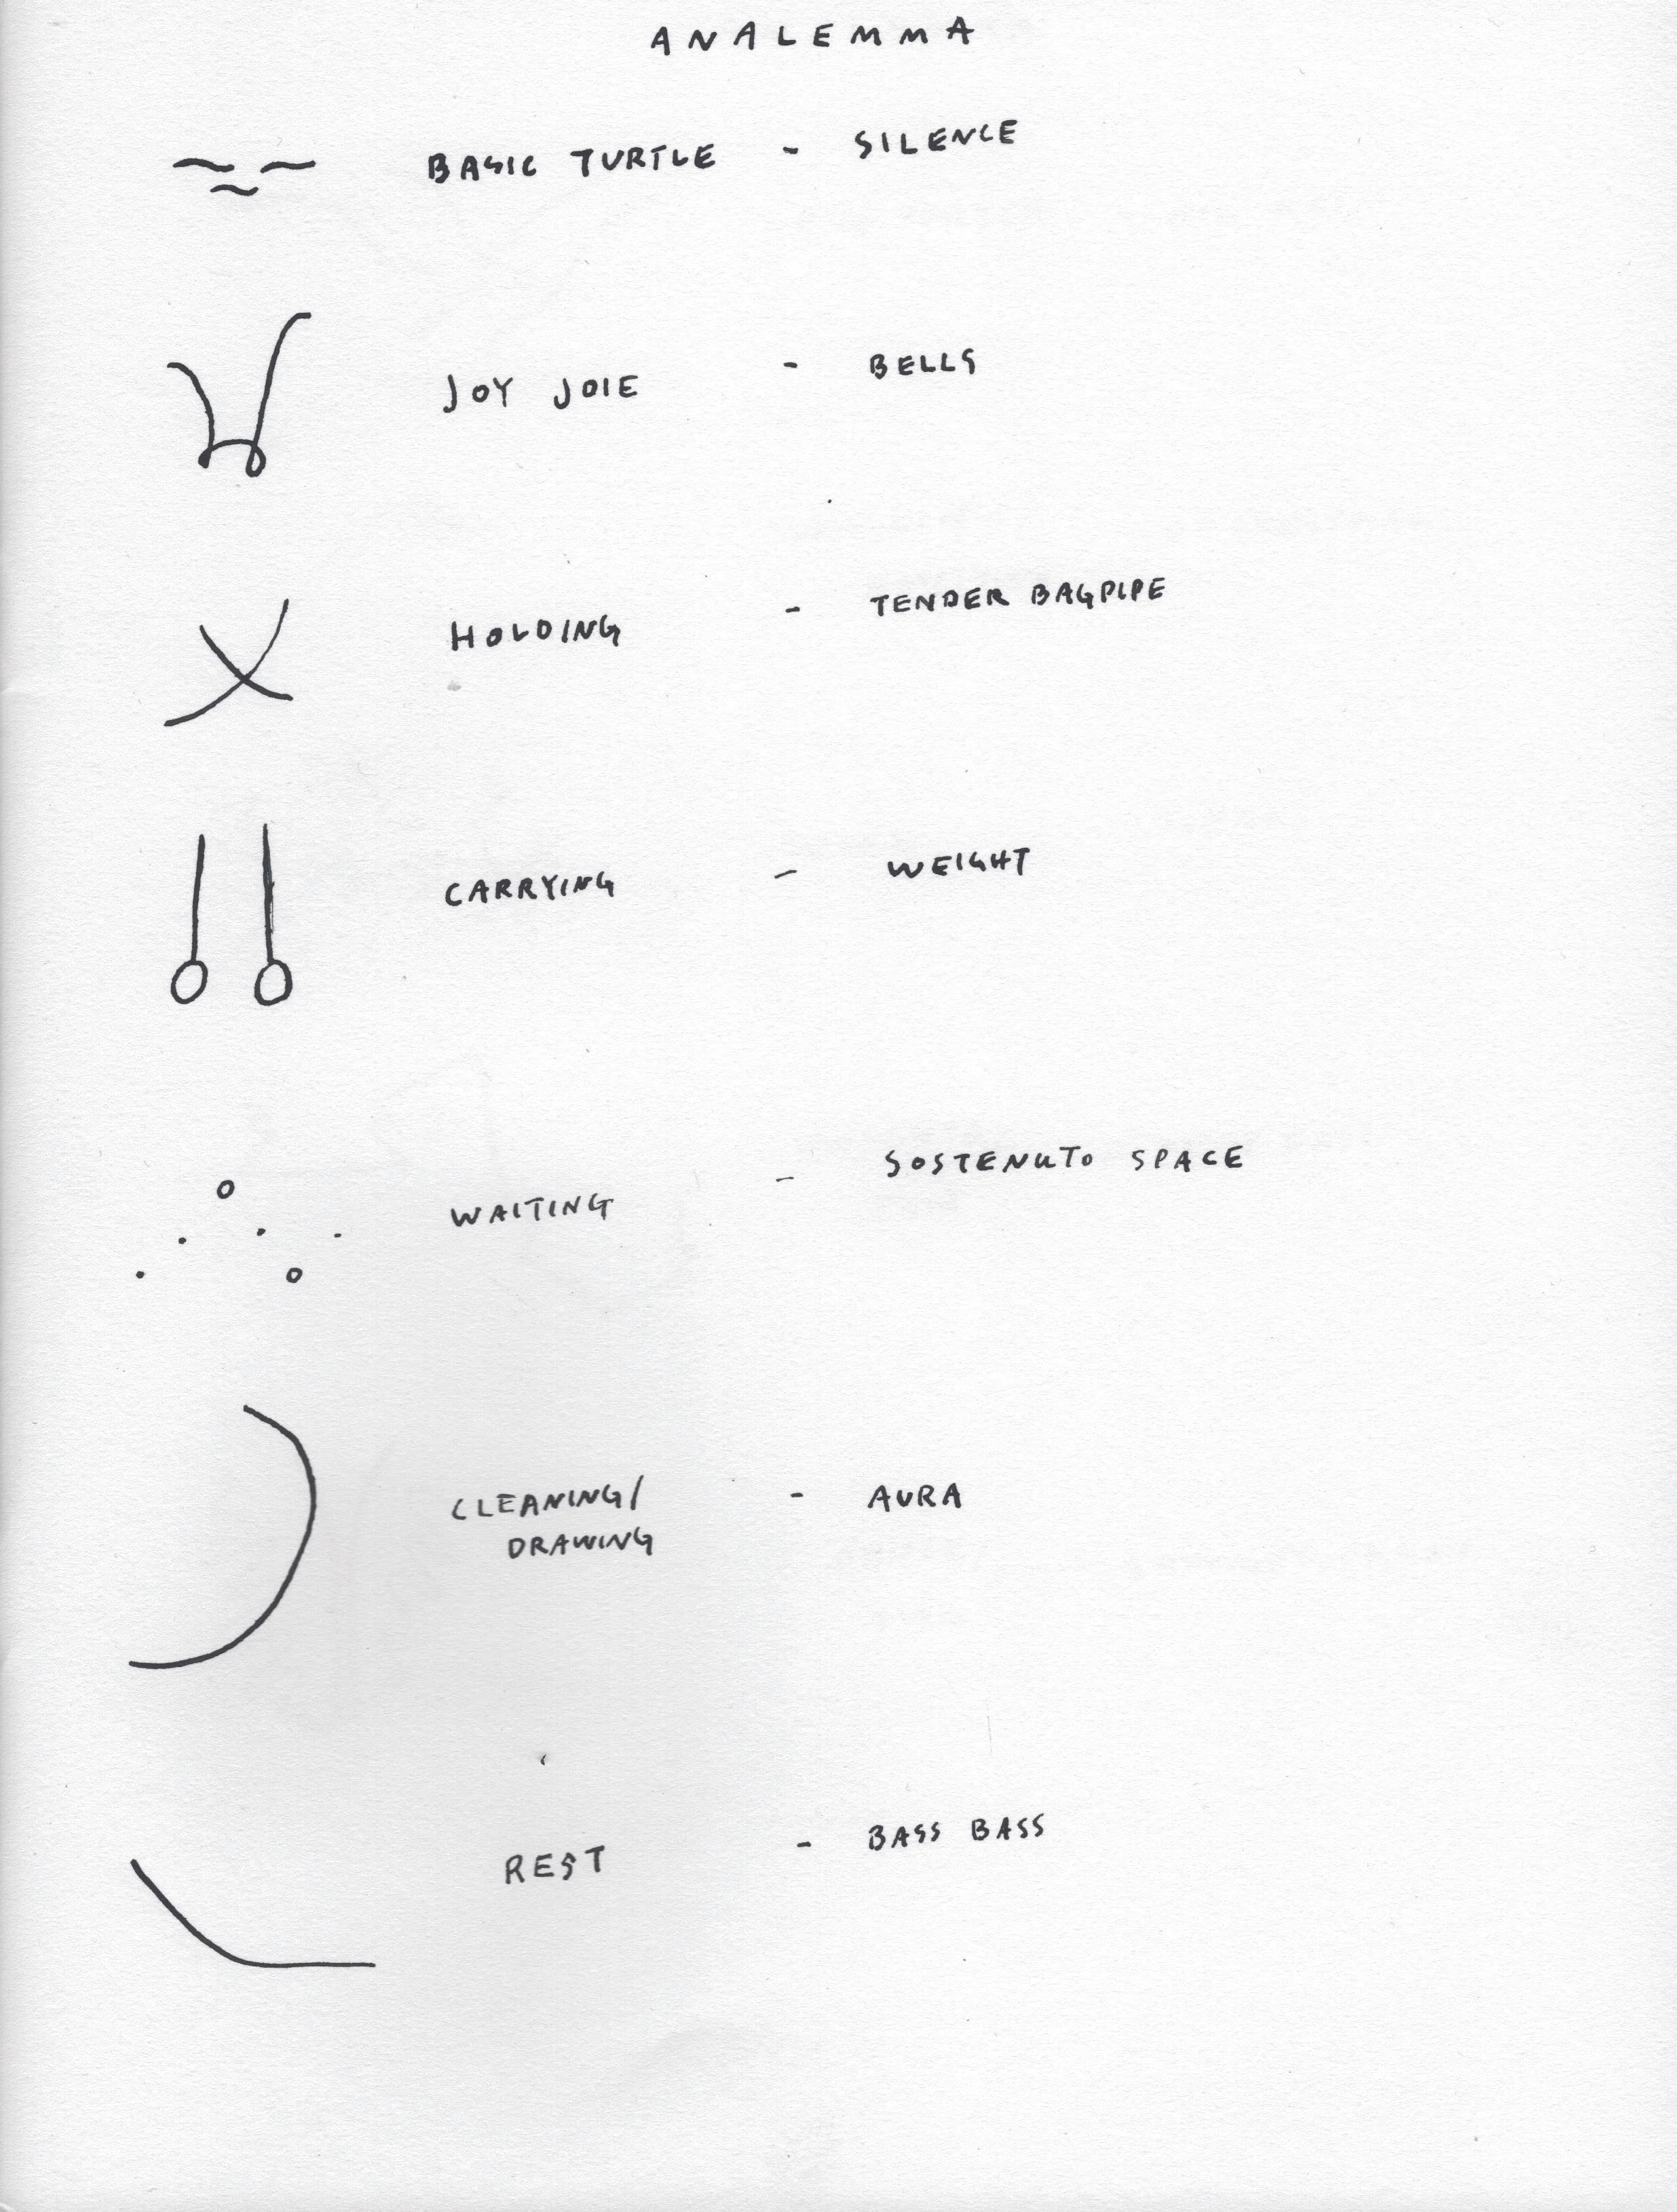 ANALEMMA
BASIC TURTLE - SILENCE
JOY JOIE - BELLS
HOLDING - TENDER BAGPIPE
CARRYING - WEIGHT
WAITING - SOSTENUTO SPACE
CLEANING/ - AURA
DRAWING
REST - BASS BASS